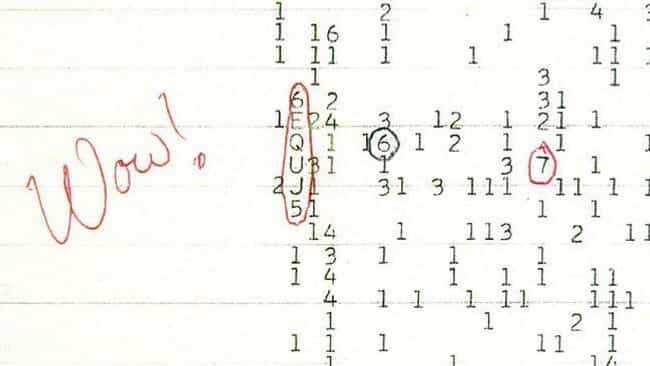 1 2 1 4 3
1 16 1 1 1
1 11 1 1 11 1
1 3 1
6 2 31
1 E 24 3 12 1 21 1
Q 1 16 1 2 1 1
Wow!
U 31 1 3 7 1
2 J 1 31 3 111 11 1 1
5 1 1 1
14 1 113 2 11
1 3 1 1 1
1 4 1 1 1 11
4 1 1 1 11 111
1 1 2 1
1 1 1 11 1
1 1 14